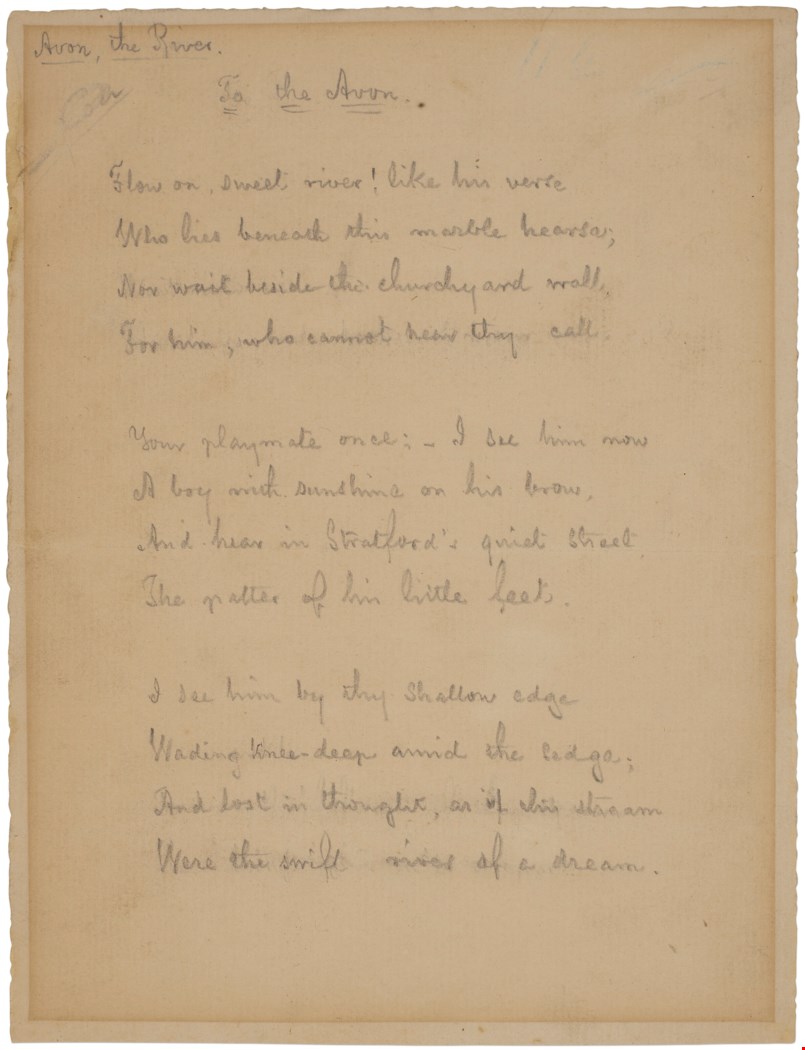 Avon, the River.
To the Avon.
Flow on, sweet river! like his verse
Who lies beneath this marble hearse;
Nor wait beside the churchyard wall
For him, who cannot hear thy call.
Your playmate once; - I see him now
A boy with sunshine on his brow,
And hear in Stratford's quiet street
The patter of his little feet.
I see him by thy shallow edge
Wading knee-deep amid the sedge;
And lost in thought, as if thy stream
Were the swift river of a dream.